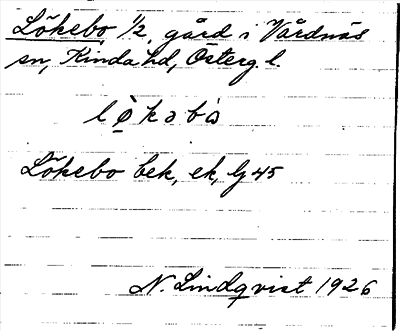 Lökebo 1/2, gård i Vårdnäs
sn, Kinda hd, Österg. l.
Lökebo bek, ek, Gj 45
N. Lindqvist 1926